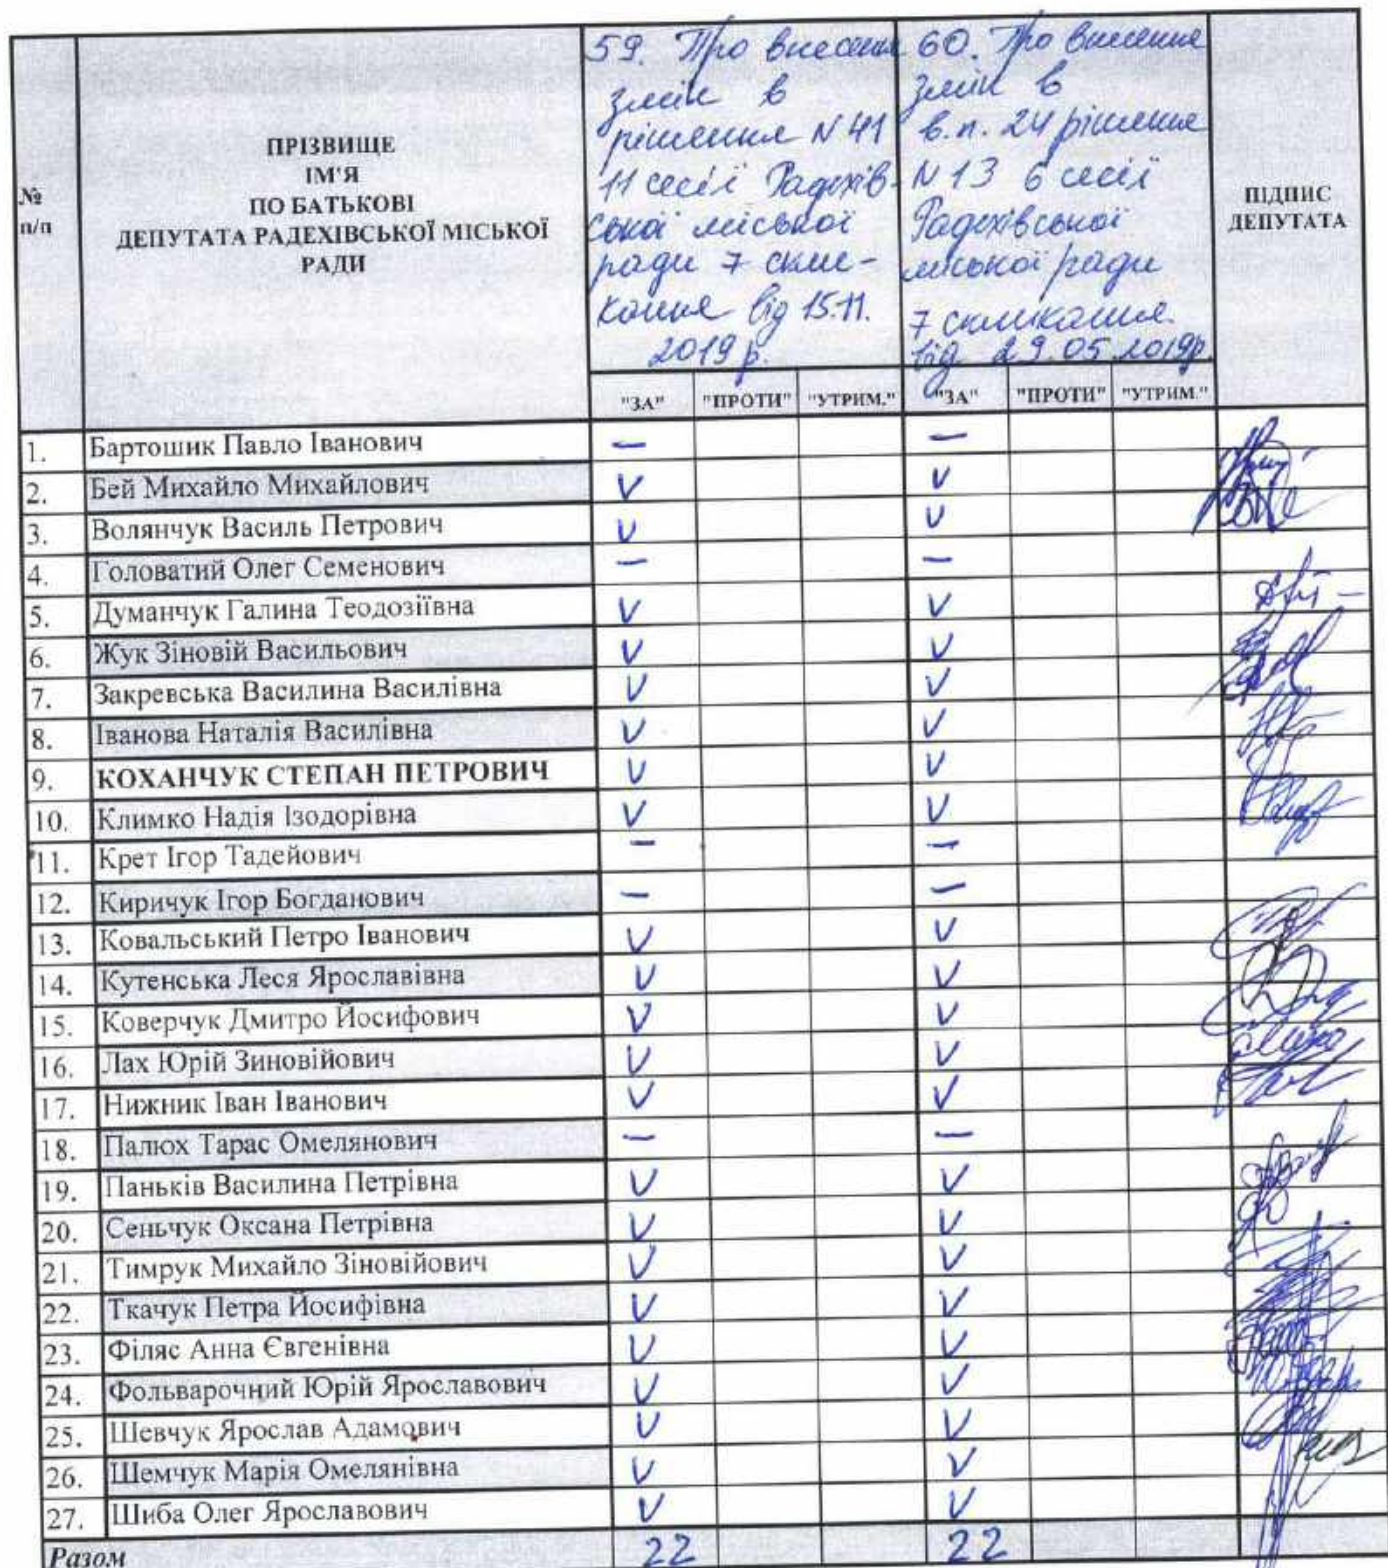 №
п/п
ПРІЗВИЩЕ
ІМ'Я
ПО БАТЬКОВІ
ДЕПУТАТА РАДЕХІВСЬКОЇ МІСЬКОЇ
РАДИ
59. Про внесення
змін в
рішення N 41
11 сесії Радехів-
ської міської
ради 7 скли-
кання від 15.11.
2019 р.
60. Про внесення
змін в
в.п. 24 рішення
N 13 6 сесії
Радехівської
міської ради
7 скликання
від 29.05.2019р.
ПІДПИС
ДЕПУТАТА
"ЗА" "ПРОТИ" "УТРИМ." "ЗА" "ПРОТИ" "УТРИМ."
1. Бартошик Павло Іванович — —
2. Бей Михайло Михайлович V V
3. Волянчук Василь Петрович V V
4. Головатий Олег Семенович — —
5. Думанчук Галина Теодозіївна V V
6. Жук Зіновій Васильович V V
7. Закревська Василина Василівна V V
8. Іванова Наталія Василівна V V
9. КОХАНЧУК СТЕПАН ПЕТРОВИЧ V V
10. Климко Надія Ізодорівна V V
11. Крет Ігор Тадейович — —
12. Киричук Ігор Богданович — —
13. Ковальський Петро Іванович V V
14. Кутенська Леся Ярославівна V V
15. Коверчук Дмитро Йосифович V V
16. Лах Юрій Зиновійович V V
17. Нижник Іван Іванович V V
18. Палюх Тарас Омелянович — —
19. Паньків Василина Петрівна V V
20. Сеньчук Оксана Петрівна V V
21. Тимрук Михайло Зіновійович V V
22. Ткачук Петра Йосифівна V V
23. Філяс Анна Євгенівна V V
24. Фольварочний Юрій Ярославович V V
25. Шевчук Ярослав Адамович V V
26. Шемчук Марія Омелянівна V V
27. Шиба Олег Ярославович V V
Разом 22 22